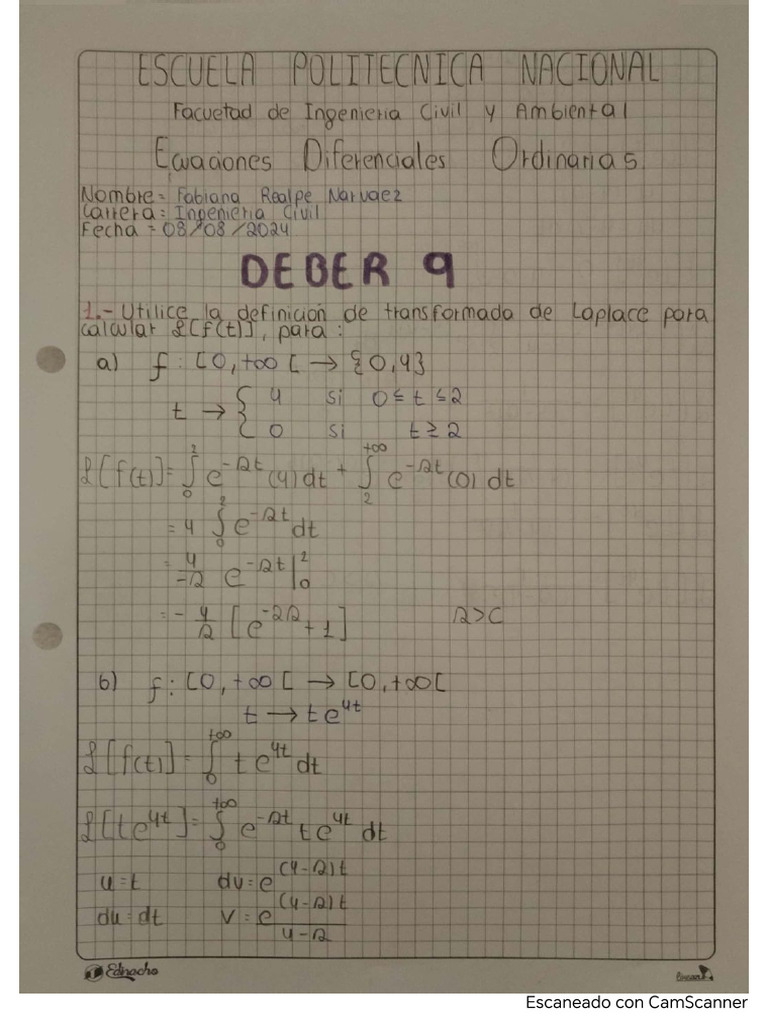 ESCUELA POLITECNICA NACIONAL
Facultad de Ingenieria Civil y Ambiental
Ecuaciones Diferenciales Ordinarias
Nombre = Fabiana Realpe Narvaez
Carrera: Ingenieria Civil
Fecha = 08/08/2024
DEBER 9
1.- Utilice la definición de transformada de Laplace para
calcular ℒ[f(t)], para:
a) f: [0,+∞[ → {0,4}
t → { 4 si 0 ≤ t ≤ 2
0 si t ≥ 2
ℒ[f(t)] = ∫₀² e^{-st} (4) dt + ∫₂^{+∞} e^{-st} (0) dt
= 4 ∫₀² e^{-st} dt
= 4/-s e^{-st} |₀²
= - 4/s [e^{-2s} + 1] s>C
b) f: [0,+∞[ → [0,+∞[
t → te^{4t}
ℒ[f(t)] = ∫₀^{+∞} t e^{4t} dt
ℒ[te^{4t}] = ∫₀^{+∞} e^{-st} te^{4t} dt
u = t dv = e^{(4-s)t}
du = dt v = e^{(4-s)t} / 4-s
Ednacho
Escaneado con CamScanner